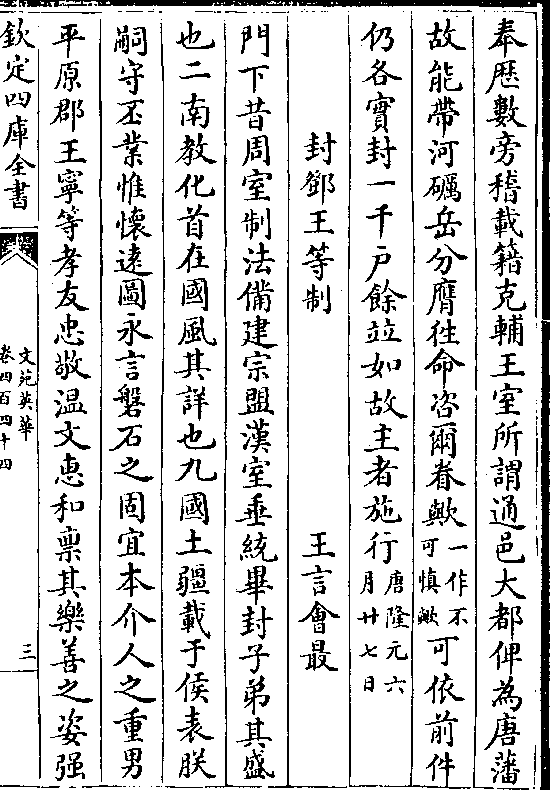 奉歴數旁稽載籍克輔王室所謂通邑大都俾為唐藩
故能帶河礪岳分膺徃命咨爾眷歟一作不可慎歟可依前件
仍各實封一千戸餘竝如故主者施行唐隆元六月廿七日
封鄧王等制　王言會最
門下昔周室制法備建宗盟漢室垂統畢封子弟其盛
也二南教化首在國風其詳也九國土疆載于侯表朕
嗣守丕業惟懷遠圖永言磐石之固宜本介人之重男
平原郡王寧等孝友忠敬温文恵和禀其樂善之姿强
欽定四庫全書
文苑英華
卷四百四十四
三